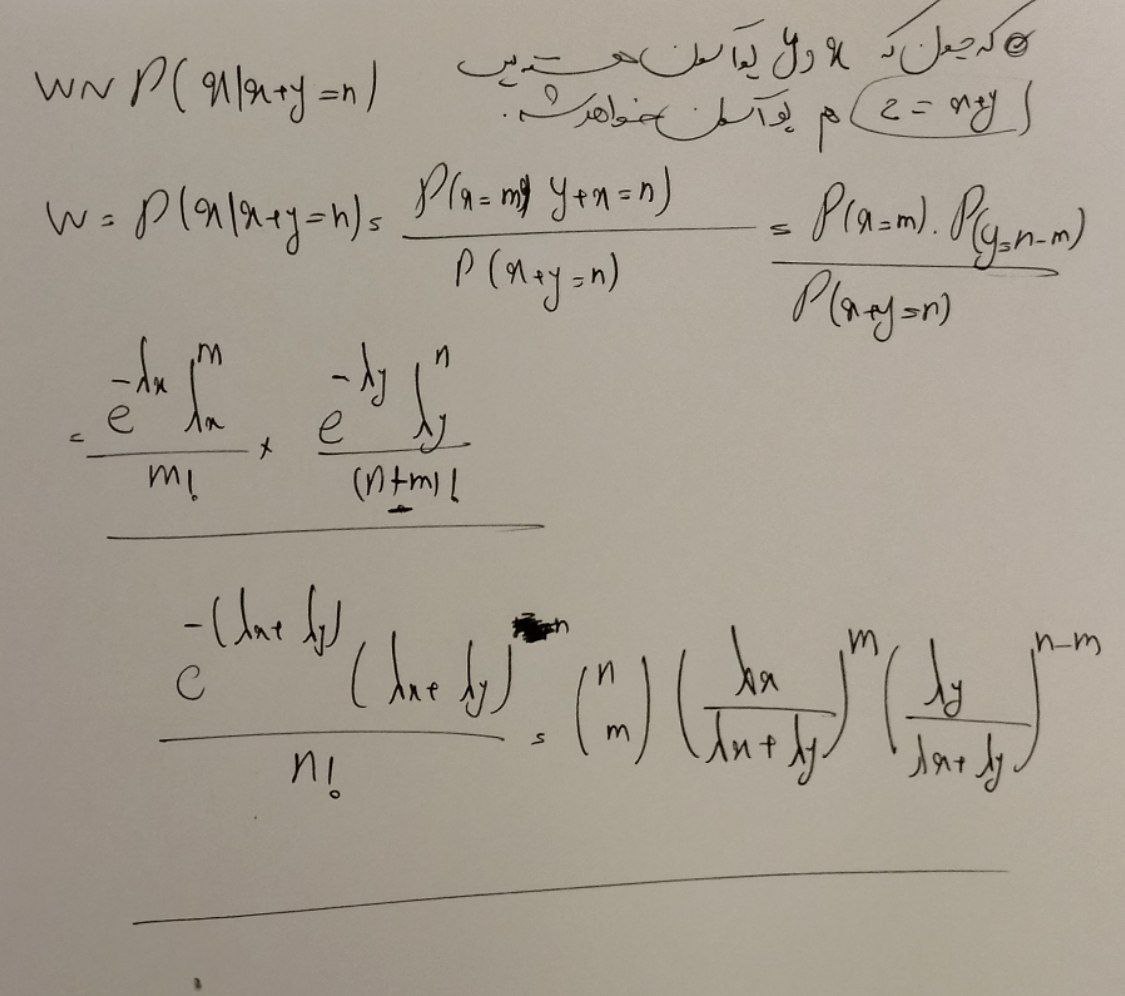 که چون که x و y پوآسون هستند پس
W ~ P(x|x+y=n)
(z = x+y) هم پوآسون خواهد شد.
W = P(x|x+y=n) = P(x=m, y+x=n) / P(x+y=n) = P(x=m). P(y=n-m) / P(x+y=n)
= e^{-λx} λx^m / m! × e^{-λy} λy^n / (n+m)!
e^{-(λx+λy)} (λx+λy)^n / n! = (n m) (λx / λx+λy)^m (λy / λx+λy)^{n-m}